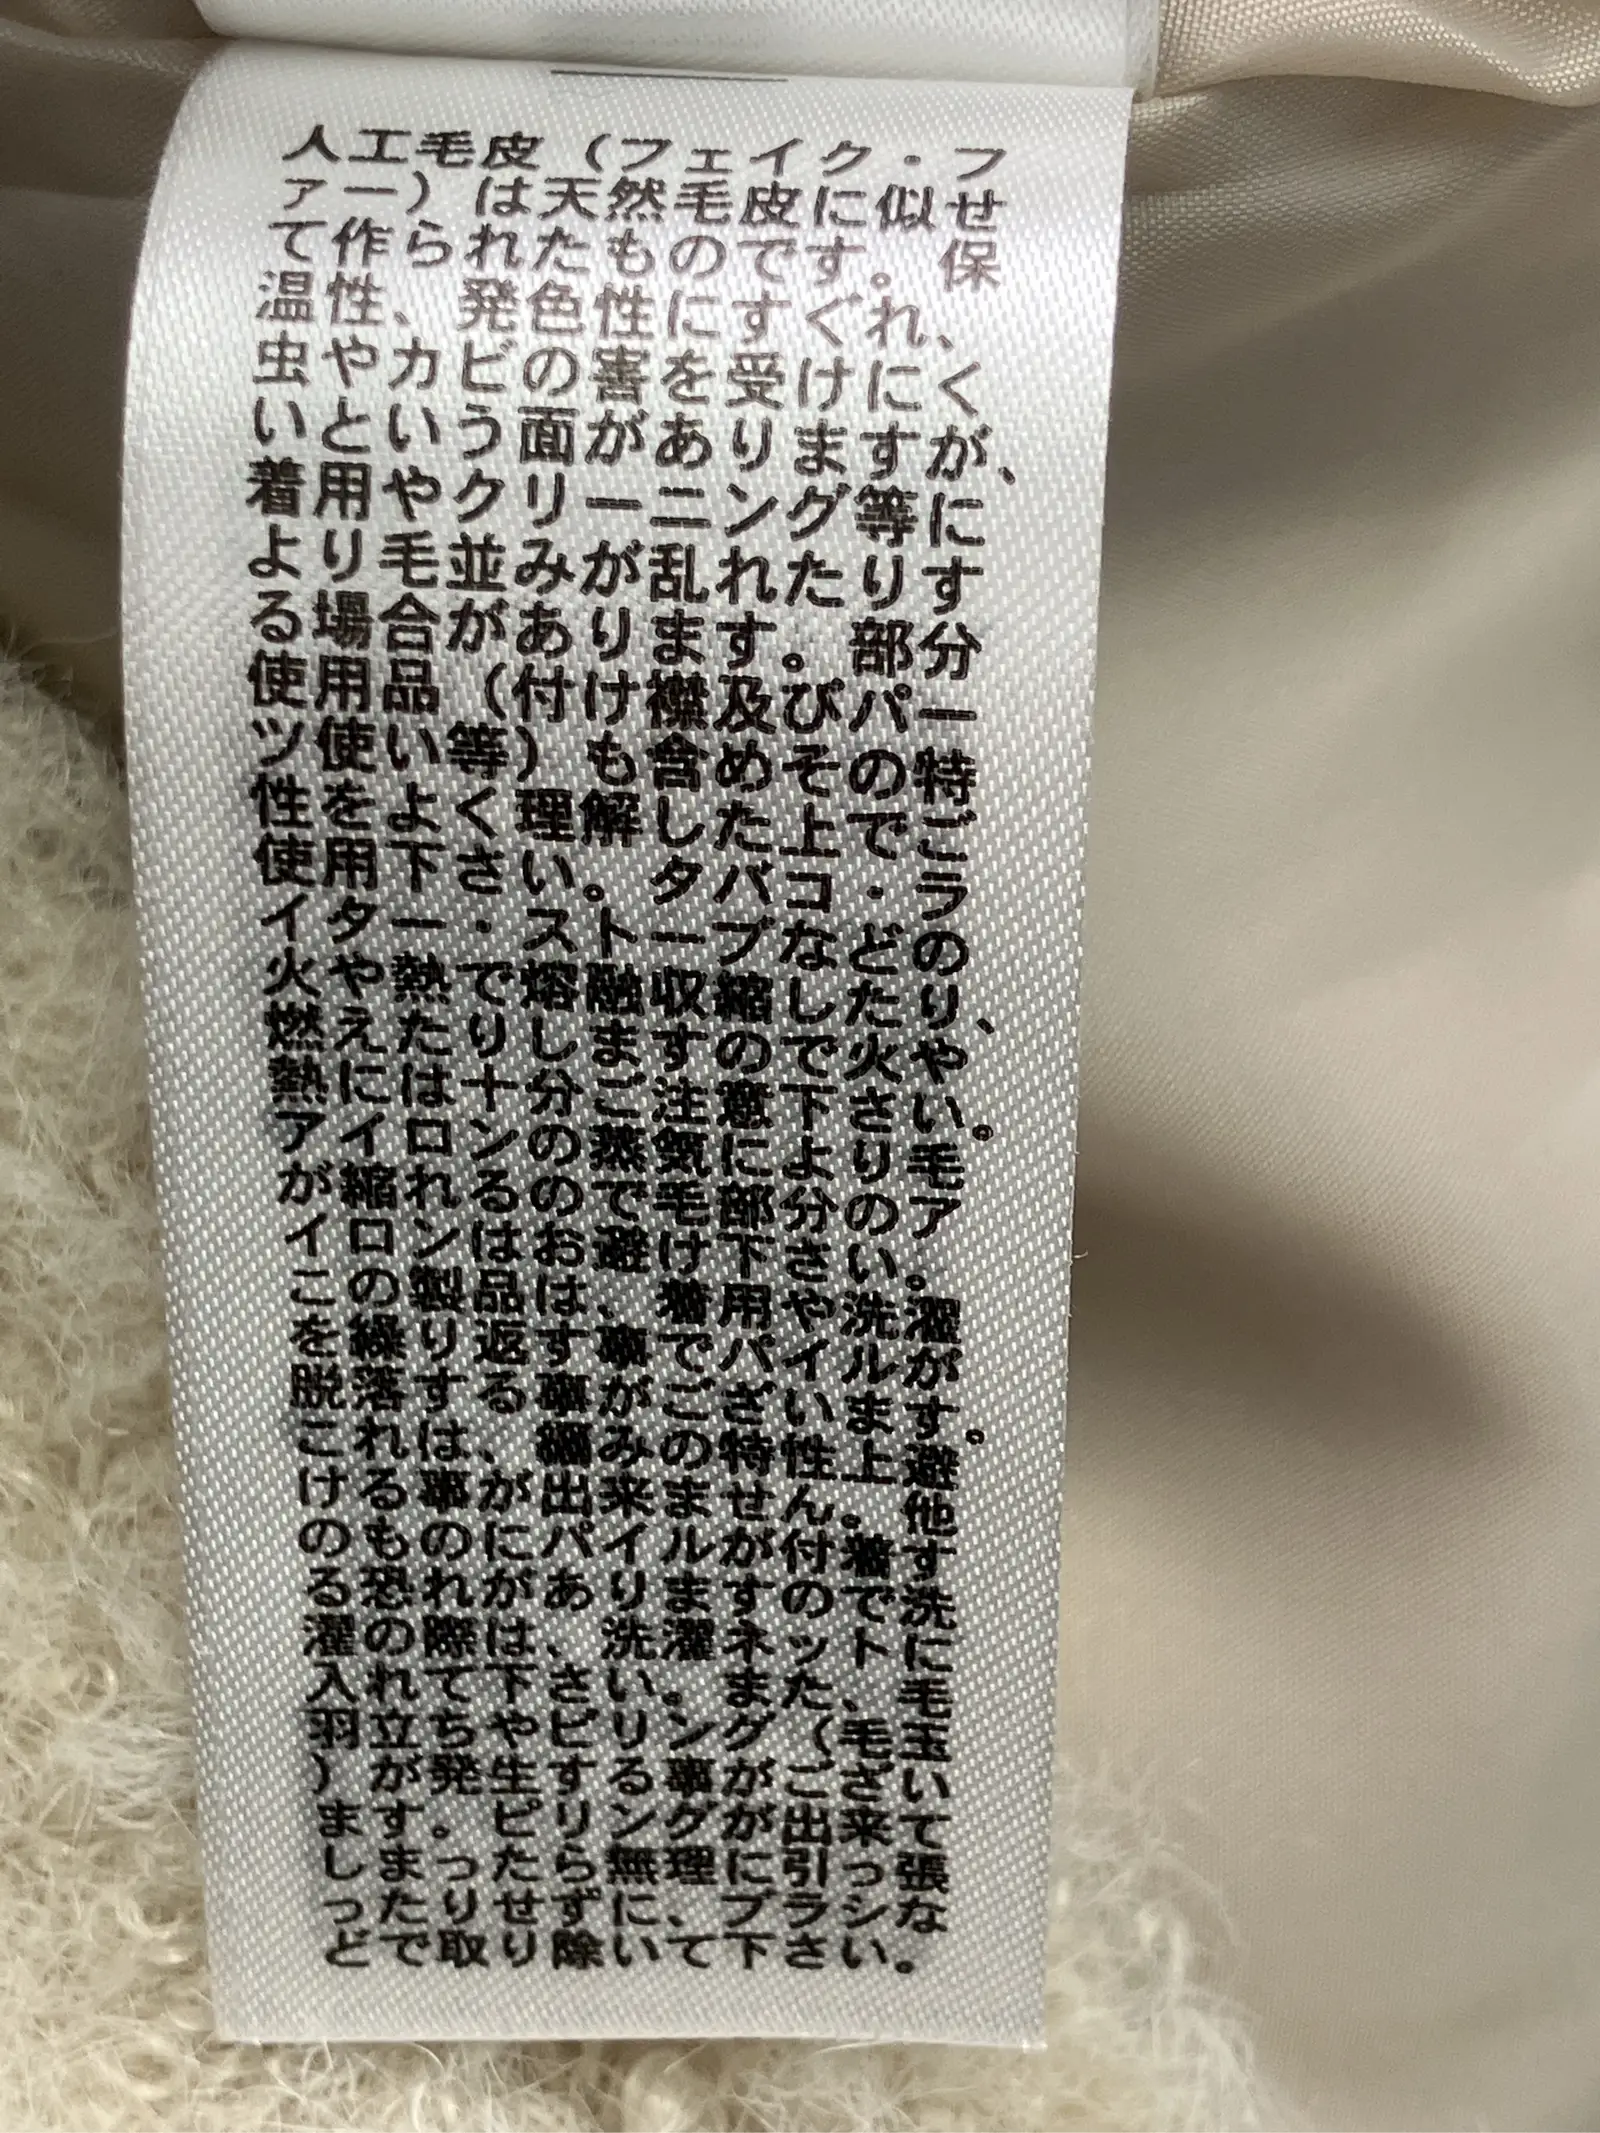 人工毛皮(フェイク・フ
ァー)は天然毛皮に似せ
て作られたものです。保
温性、発色性にすぐれ、
虫やカビの害を受けにく
いという面がありますが、
着用やクリーニング等に
より毛並みが乱れたりす
る場合があります。部分
使用品(付け襟及びパー
ツ使い等)も含めその特
性をよく理解した上でご
使用下さい。タバコ・ラ
イター・ストーブなどの
火や熱で熔融収縮したり、
燃えたりしますので火や
熱には十分ご注意下さい。
アイロンの蒸気により毛
が縮れるので毛部分のア
イロンはお避け下さい。
この製品は、着用や洗濯
を繰り返す事でパイルが
脱落する事がございます。
これは、編みの特性上避
ける事が出来ません。他
のものにパイルが付着す
る恐れがありますので洗
濯の際は、洗濯ネットに
入れて下さい。また、毛
羽立ちやピリング(毛玉
)が発生する事がござい
ます。ピリングが出来て
しまったら無理に引っ張
ったりせずに、ブラシな
どで取り除いて下さい。